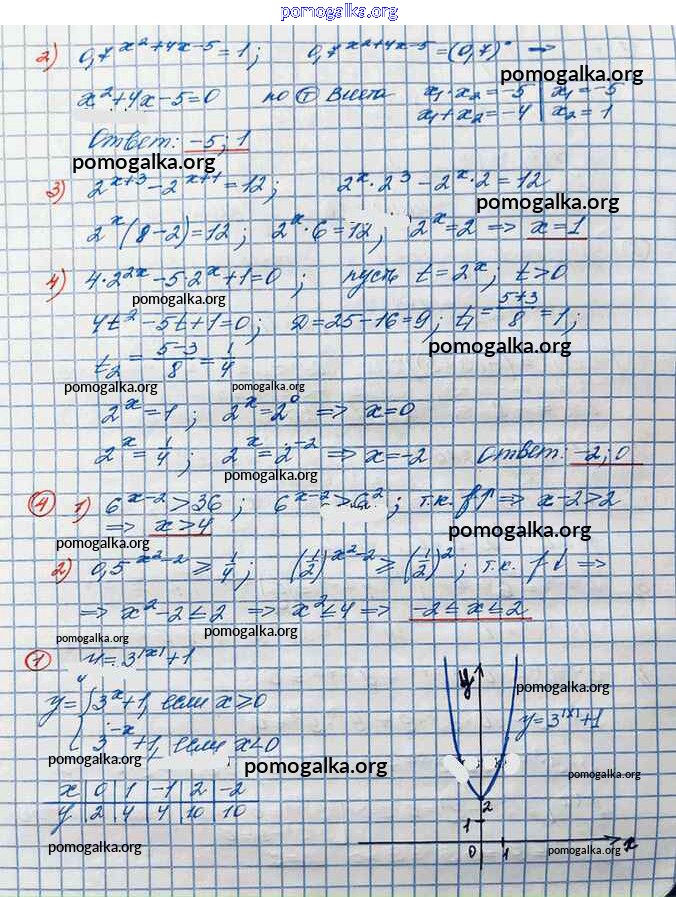 pomogalka.org
2) 0,7^(x²+4x-5) = 1; 0,7^(x²+4x-5) = (0,7)°
pomogalka.org
x²+4x-5=0 по Ⓣ Виета x₁·x₂=-5 | x₁=-5
x₁+x₂=-4 | x₂=1
Ответ: -5; 1
pomogalka.org
3) 2^(x+3) - 2^(x+1) = 12; 2^x·2³ - 2^x·2 = 12
pomogalka.org
2^x(8-2)=12; 2^x·6=12; 2^x=2 => x=1
4) 4·2^(2x) - 5·2^x + 1 = 0; пусть t=2^x; t>0
pomogalka.org
4t²-5t+1=0; D=25-16=9; t₁=(5+3)/8=1;
pomogalka.org
t₂=(5-3)/8=1/4
pomogalka.org pomogalka.org
2^x=1; 2^x=2⁰ => x=0
2^x=1/4; 2^x=2^(-2) => x=-2 Ответ: -2; 0
pomogalka.org
④ 1) 6^(x-2)>36; 6^(x-2)>6²; т.к. f↑ => x-2>2
=> x>4
pomogalka.org pomogalka.org
2) 0,5^(x²-2) ≥ 1/4; (1/2)^(x²-2) ≥ (1/2)²; т.к. f↓ =>
=> x²-2≤2 => x²≤4 => -2≤x≤2
pomogalka.org pomogalka.org
① y=3^|x|+1
y={3^x+1, если x≥0
3^(-x)+1, если x<0
pomogalka.org pomogalka.org
x | 0 | 1 | -1 | 2 | -2
y | 2 | 4 | 4 | 10 | 10
pomogalka.org
y
pomogalka.org
y=3^|x|+1
pomogalka.org
2
1
x
0 1
pomogalka.org